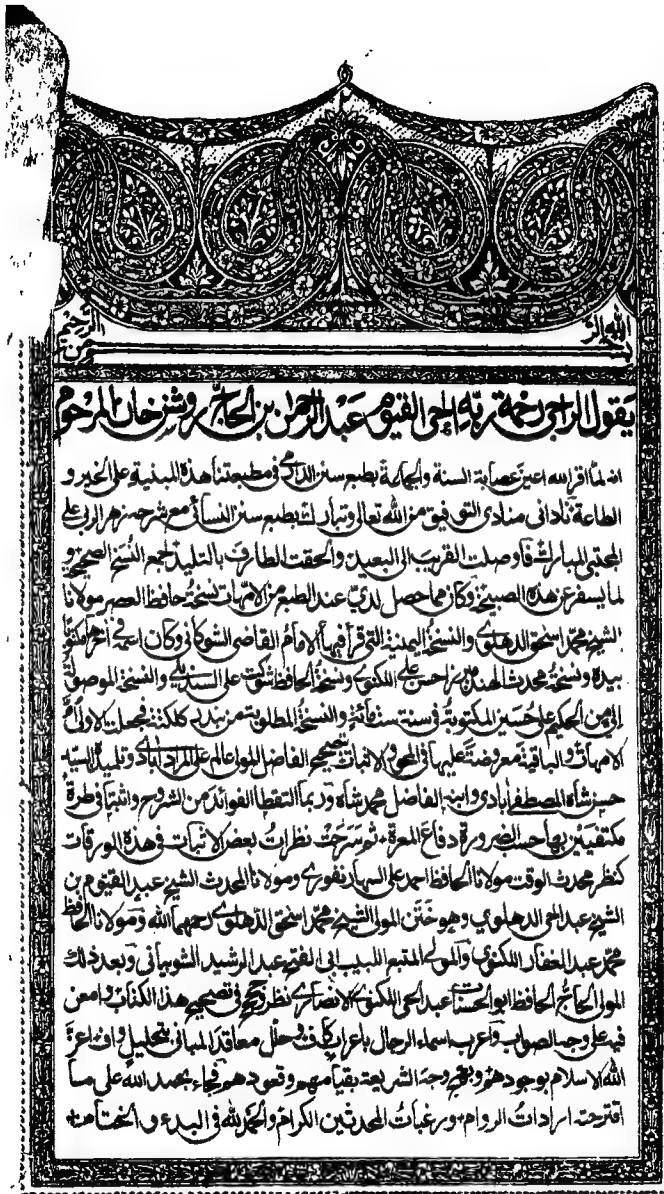 بسم الله الرحمن الرحيم
يقول الراجي رحمة ربه الحي القيوم عبد الرحمن بن الحاج روشن خان المرحوم
انه لما اقر الله اعين عصابة السنة والجماعة بطبع سنن الدارمي في مطبعتنا هذه المبنية على الخير و
الطاعة نادانى منادى التوفيق من الله تعالى وتبارك لشيطبع سنن النسائى مع شرحه زهر الربى على
المجتبى المبارك فأوصلت القريب الى البعيد والحقت الطارف بالتليد لجمع النسخ الصحيحة و
لما يسفر عن هذه الصبيحة وكان مما حصل لدي عند الطبع من الامهات نسخة حافظ العصر مولانا
الشيخ محمد اسحق الدهلوي والنسخة اليمنية التي قرأ فيها الامام القاضى الشوكانى وكان اسمه في اخرها مكتوبا
بيده ونسخة محدث الهند ميرزا حسن على اللكنوي ونسخة الحافظ شوكت على السنديلي والنسخة الموصولة
إلي من الحكيم على حسين المكتوبة في سنة ستمائة والنسخة المطلوبة من بندر كلكته فجعلت الاولى
الامهات والباقية معروضة عليها في المحو والاثبات بتصحيح الفاضل المولى عالم على المرادابادى وتلميذه السيد
حسن شاه المصطفى أبادي وابنه الفاضل محمد شاه وربما التقطا الفوائد من الشروح واثبتا في طرة
مكتفيين بها حسب الضرورة دفاع المعرة ثم سرحت نظرات بعض الاثبات في هذه الورقات
كنظر محدث الوقت مولانا الحافظ احمد على السهارنفوري ومولانا المحدث الشيخ عبد القيوم بن
الشيخ عبد الحى الدهلوي وهو ختن المولى الشيخ محمد اسحق الدهلوي رحمهما الله ومولانا الحافظ
محمد عبد الغفار اللكنوي والمولى المتبه اللبيب ابى الفتح عبد الرشيد الشوپيانى وبعد ذلك
المولى الحاج الحافظ ابو الحسنات عبد الحى اللكنوي الانصاري نظر في تصحيح هذا الكتاب وامعن
فيها على وجه الصواب واعرب اسماء الرجال باعراب كاف وحل معاقد المبانى بتحليل واف اعز
الله الاسلام بوجودهم وبهج وجه الشريعة بقيامهم وقعودهم فجاء بحمد الله على ما
اقترحته ارادات الروام ورغبات المحدثين الكرام والحمد لله في البدء والختام